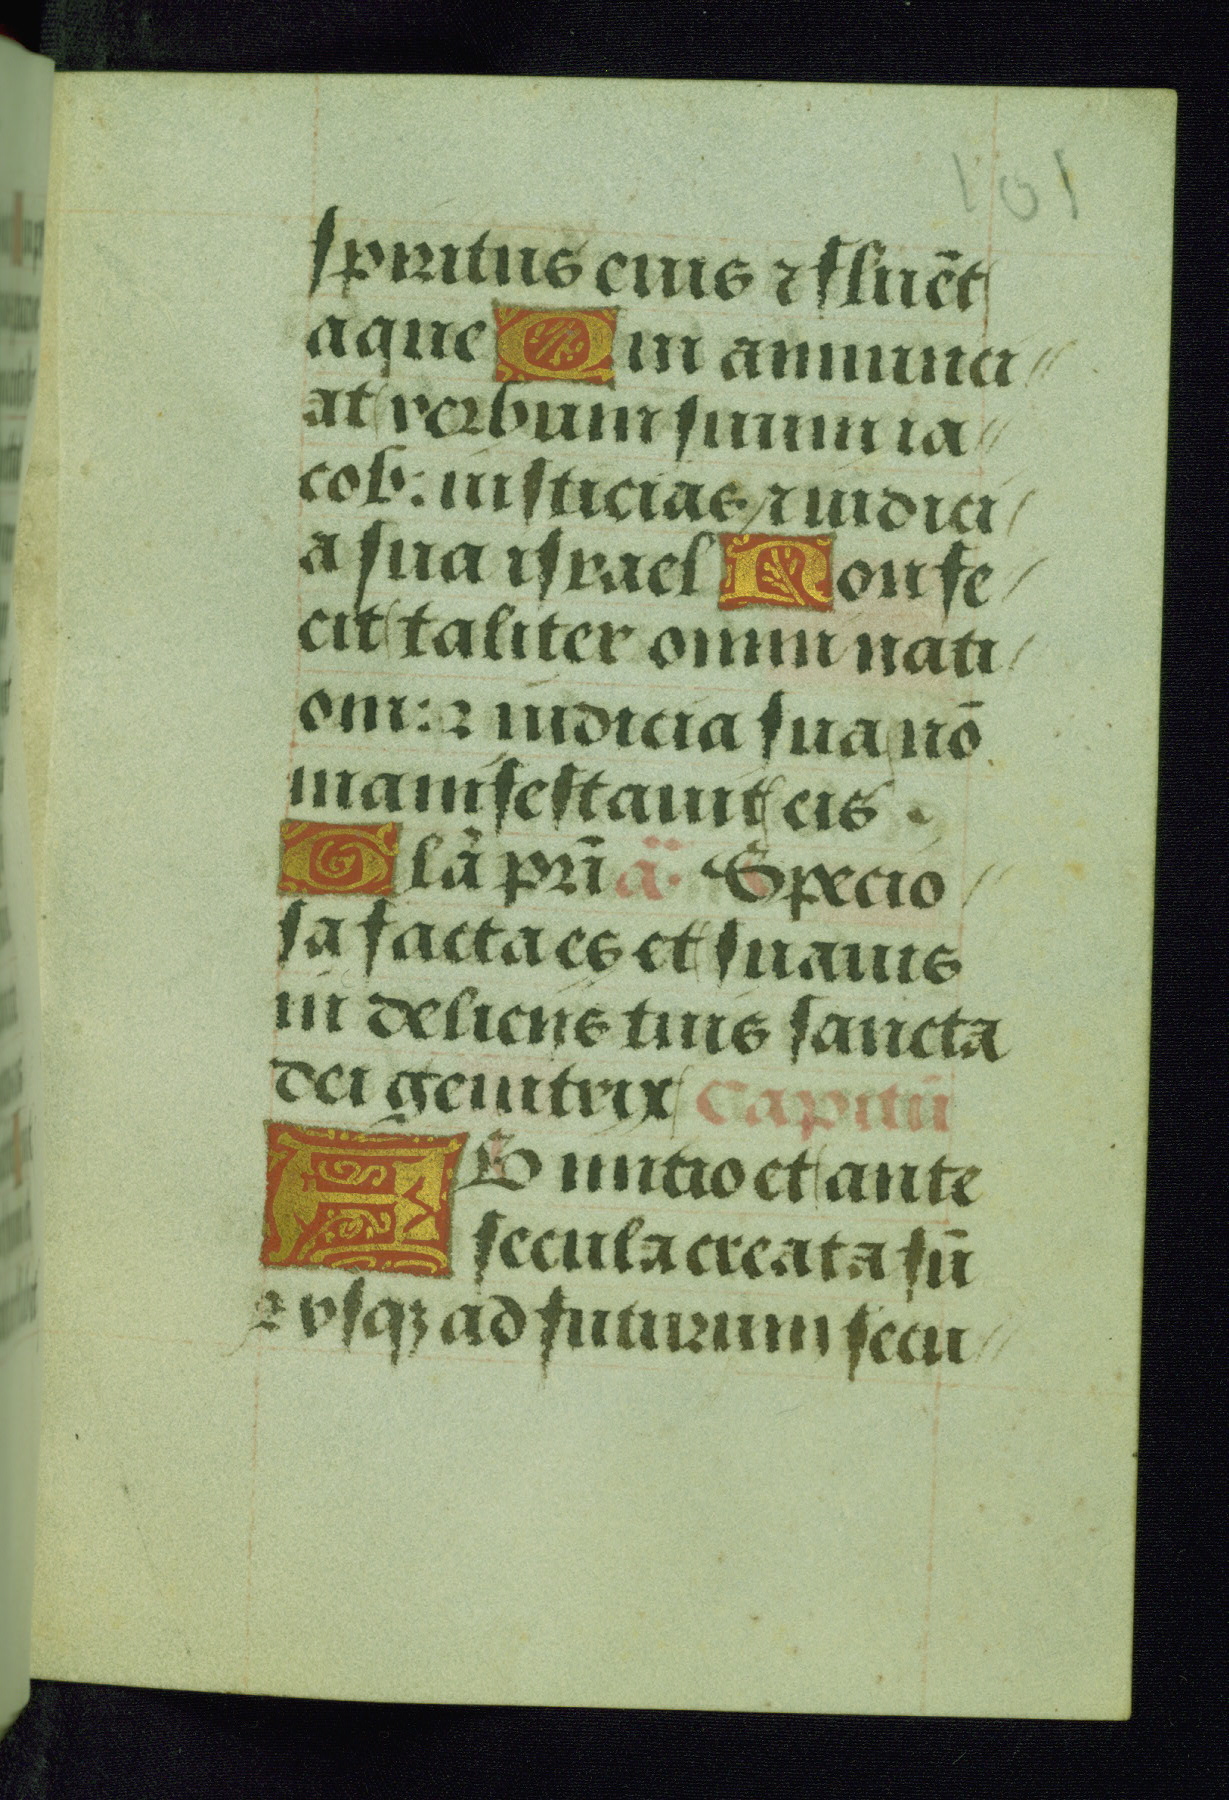 101
spiritus eius ⁊ fluēt
aque Qui annunci//
at verbum suum ia//
cob: iusticias ⁊ iudici/
a sua israel Non fe/
cit taliter omni nati/
oni: ⁊ iudicia sua nō
manifestauit eis.
Glā pr̄i ā. Specio/
sa facta es et suauis
in deliciis tuis sancta
dei genitrix Capitū
AB initio et ante
secula creata sū
⁊ vsqꝫ ad futurum secu//